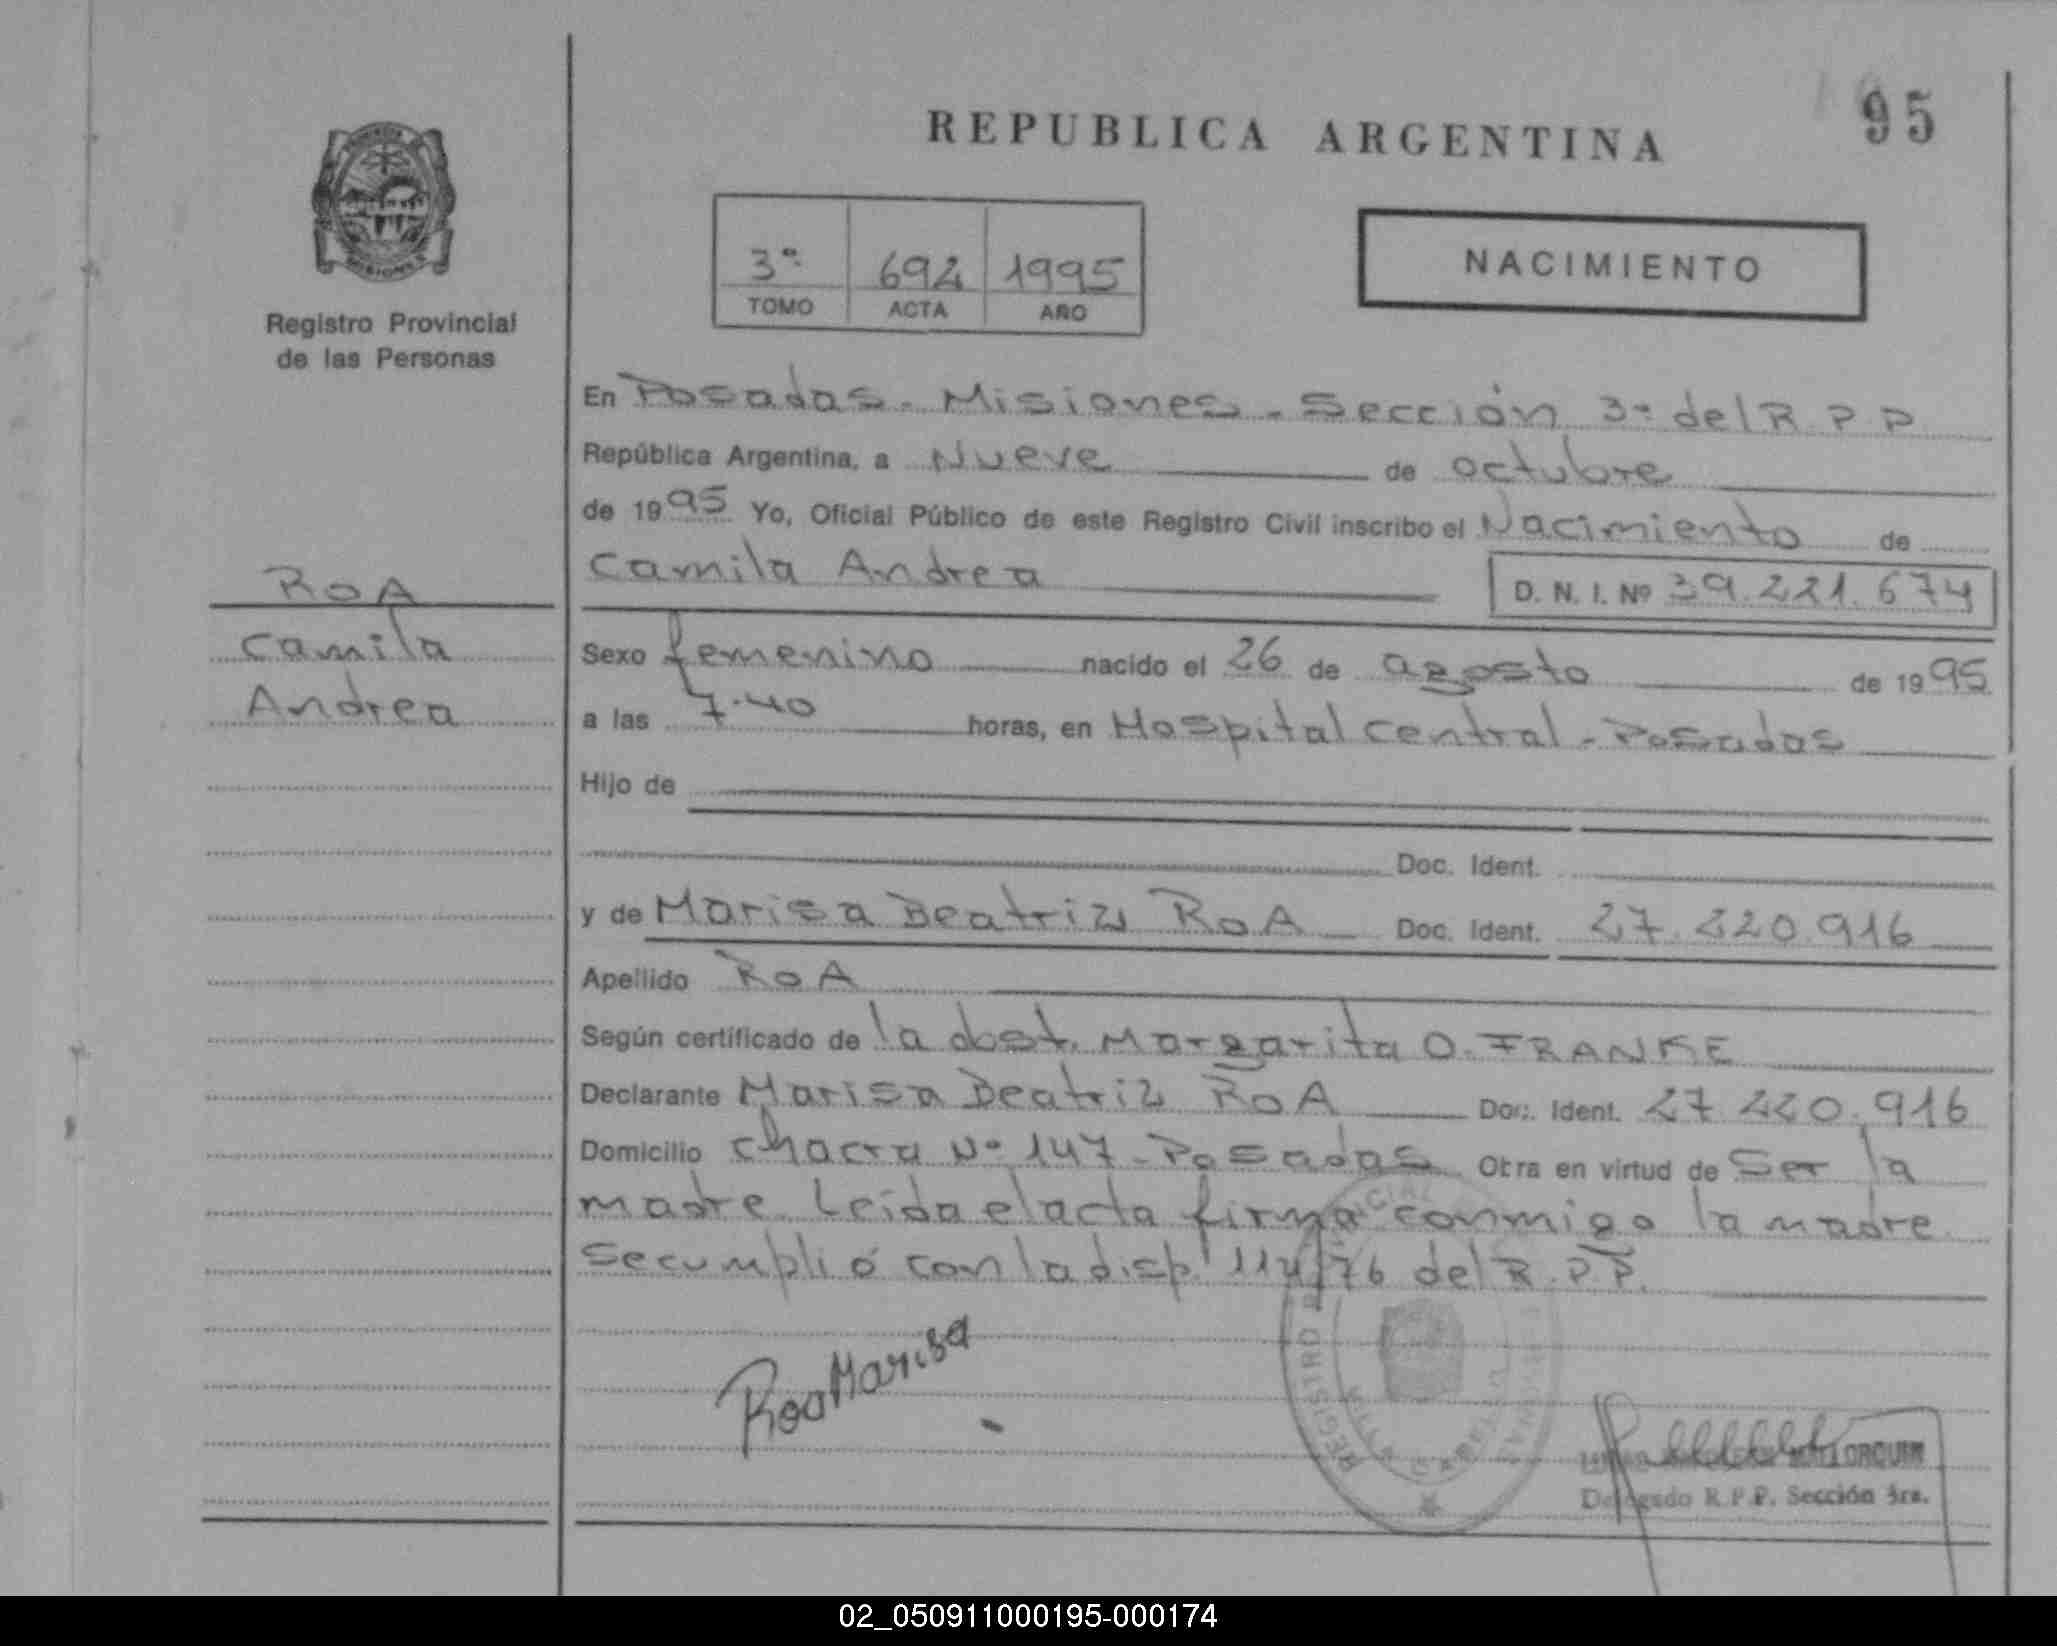 95
REPUBLICA ARGENTINA
NACIMIENTO
3ª 692 1995
TOMO ACTA AÑO
MISIONES
Registro Provincial
de las Personas
En Posadas - Misiones - Sección 3ª del R.P.P
República Argentina, a Nueve de octubre
de 1995 Yo, Oficial Público de este Registro Civil inscribo el Nacimiento de
Camila Andrea D. N. I. Nº 39.221.674
ROA
Camila
Andrea
Sexo femenino nacido el 26 de agosto de 1995
a las 7.40 horas, en Hospital Central - Posadas
Hijo de
Doc. Ident.
y de Marisa Beatriz ROA Doc. Ident. 27.220.916
Apellido ROA
Según certificado de la obst. Margarita O. FRANKE
Declarante Marisa Beatriz ROA Doc. Ident. 27.220.916
Domicilio Chacra Nº 147 - Posadas Obra en virtud de Ser la
madre. Leida el acta firma conmigo la madre
Se cumplió con la disp. 114/76 del R.P.P.
Roa Marisa
REGISTRO
VILLA CABELLO
Delegado R.P.P. Sección 3ra.
02_050911000195-000174